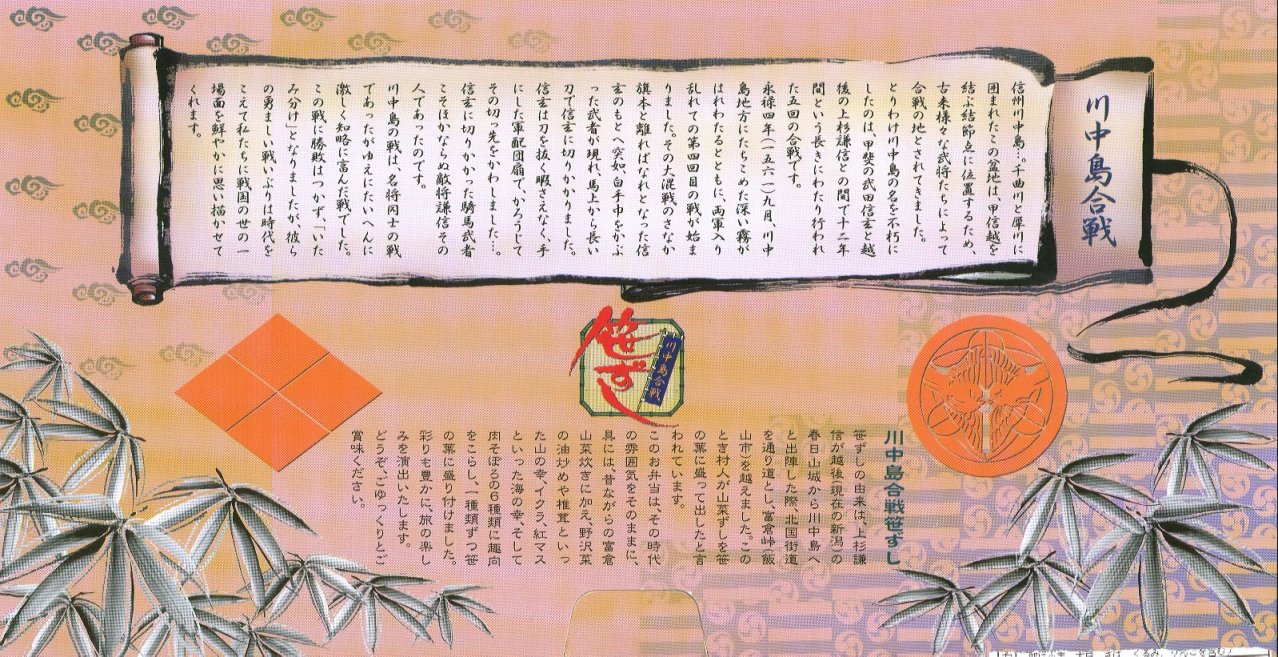 川中島合戦
信州川中島…。千曲川と犀川に
囲まれたこの盆地は、甲信越を
結ぶ結節点に位置するため、
古来様々な武将たちによって
合戦の地とされてきました。
とりわけ川中島の名を不朽に
したのは、甲斐の武田信玄と越
後の上杉謙信との間で十二年
間という長きにわたり行われ
た五回の合戦です。
永禄四年（一五六一）九月、川中
島地方にたちこめた深い霧が
はれわたるとともに、両軍入り
乱れての第四回目の戦が始ま
りました。その大混戦のさなか
旗本と離ればなれとなった信
玄のもとへ突如、白手巾をかぶ
った武者が現れ、馬上から長い
刀で信玄に切りかかりました。
信玄は刀を抜く暇さえなく、手
にした軍配団扇で、かろうじて
その切っ先をかわしました…。
信玄に切りかかった騎馬武者
こそほかならぬ敵将謙信その
人であったのです。
川中島の戦は、名将同士の戦
であったがゆえにたいへんに
激しく知略に富んだ戦でした。
この戦に勝敗はつかず、「いた
み分け」となりましたが、彼ら
の勇ましい戦いぶりは時代を
こえて私たちに戦国の世の一
場面を鮮やかに思い描かせて
くれます。
川中島合戦
笹ずし
川中島合戦笹ずし
笹ずしの由来は、上杉謙
信が越後（現在の新潟）の
春日山城から川中島へ
と出陣した際、北国街道
を通り道とし、富倉峠（飯
山市）を越えました。この
とき村人が山菜ずしを笹
の葉に盛って出したと言
われています。
このお弁当は、その時代
の雰囲気をそのままに、
具には、昔ながらの富倉
山菜炊きに加え、野沢菜
の油炒めや椎茸といっ
た山の幸、イクラ、紅マス
といった海の幸、そして
肉そぼろの6種類に趣向
をこらし、一種類ずつ笹
の葉に盛り付けました。
彩りも豊かに、旅の楽し
みを演出いたします。
どうぞ、ごゆっくりとご
賞味ください。